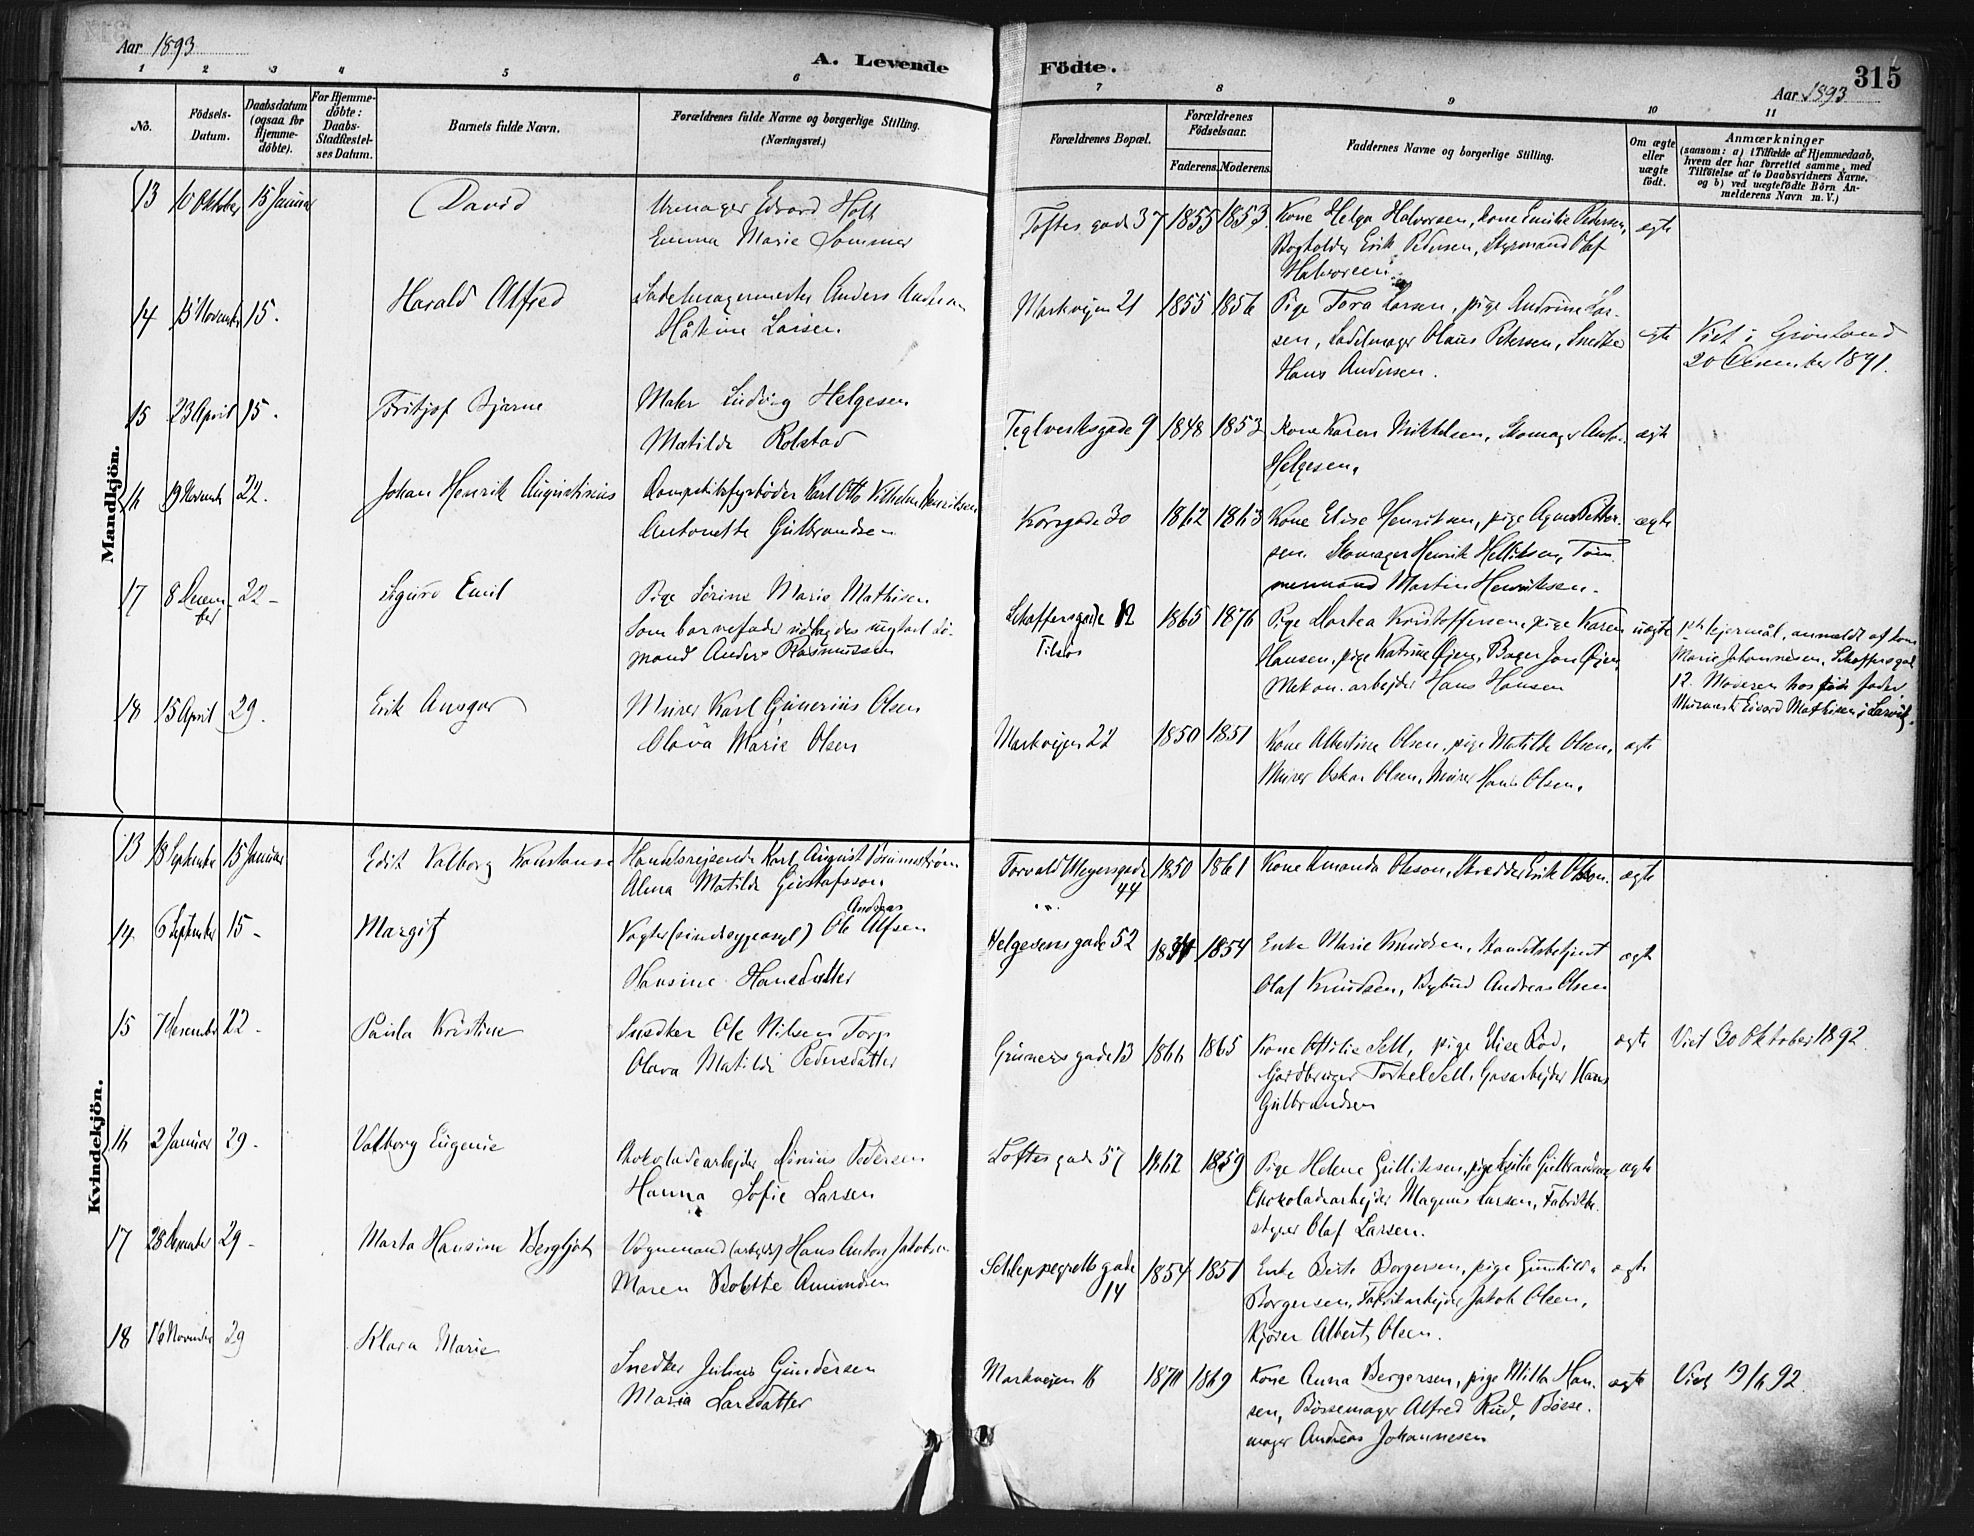 Aar 1893
A. Levende Födte.
315
Aar 1893
1 2 3 4 5 6 7 8 9 10 11
Nö.
Födsels-
Datum.
Daabsdatum
(ogsaa for
Hjemme-
döbte).
For Hjemme-
döbte:
Daabs-
Stadfæstel-
ses Datum.
Barnets fulde Navn.
Forældrenes fulde Navne og borgerlige Stilling.
(Næringsvei.)
Forældrenes Bopæl.
Forældrenes
Födselsaar.
Faderens. Moderens.
Faddernes Navne og borgerlige Stilling.
Om ægte
eller
uægte
födt.
Anmærkninger
(saasom: a) i Tilfælde af Hjemmedaab,
hvem der har forrettet samme, med
Tilföielse af to Daabsvidners Navne,
og b) ved uægtefödte Börn An-
melderens Navn m. V.)
Mandkjön.
13 10 Oktober 15 Januar David
Urmager Edvard Holt
Emma Marie Sommer
Toftes gade 37 1855 1853
Kone Helga Halvorsen, Kone Emilie Pedersen,
Bogholder Erik Pedersen, Styrmand Olaf
Halvorsen
ægte
14 15 November 15. Harald Alfred
Sadelmagermester Anders Andersen
Håkine Larsen.
Markvejen 21 1855 1856
Pige Tora Larsen, pige Andrine Lar-
sen, Sadelmager Olaus Petersen, Snedker
Hans Andersen.
ægte
Viet i Grønland
20 December 1891.
15 23 April 15. Fritjof Bjarne
Maler Ludvig Helgesen
Matilde Rolstad
Teglverksgade 9 1848 1853
Kone Karen Mikkelsen, Skomager Anto
Helgesen.
ægte
16 19 Novembr 22. Johan Henrik Augustinius
Karl Otto Vilhelm Henriksen
Antonette Gulbrandsen
Korsgade 30 1862 1863
Kone Elise Henriksen, pige Agnes Petter-
sen. Skomager Henrik Helliksen, Töm-
mermand Martin Henriksen.
ægte
17 8 Decem-
ber 22 - Sigurd Emil
Pige Sörine Marie Mathisen
Som barnefader udlagdes ungkarl Sö-
mand Anders Rasmussen
Schaffersgade 12
1865 1876
Pige Dortea Kristoffersen, pige Karen
Hansen, pige Katrine Øjen, Bager Jon Øjen,
Mekan. arbejder Hans Hansen
uægte
1ste lejermål, anmeldt af kone
Marie Johannesen, Schaffersgade
12. Moderen hos sin fader,
Edvard Mathisen i Larvik.
18 15 April 29. Erik Ansgar
Murer Karl Gunerius Olsen
Olava Marie Olsen
Markvejen 22 1850 1851
Kone Albertine Olsen, pige Matilde Olsen,
Murer Oskar Olsen, Murer Hans Olsen.
ægte
Kvindekjön.
13 18 September 15 Januar Edit Valborg Konstanse
Handelsrejsende Karl August Brunnström
Alma Matilde Gustafsson.
Torvald Meyersgade
44
1850 1861
Kone Amanda Olsson, Skrædder Erik Olsson.
ægte
14 6 September 15 - Margit
Andreas
Vogter (sindsygeasyl) Ole Alfsen
Hansine Hansdatter
Helgesens gade 52 1854
Enke Marie Knudsen, Handelsbetjent
Olaf Knudsen, Bybud Andreas Olsen
ægte
15 7 December 22 - Paula Kristine
Snedker Ole Nilsen Torp
Olava Matilde Pedersdatter
Grüners gade 13 1866 1865
Kone Ottilie Sell, pige Elise Rod,
Gårdbruger Torkel Sell, Gasarbejder Hans
Gulbrandsen
ægte
Viet 30 Oktober 1892.
16 2 Januar 29 - Valborg Eugenie
Chokoladearbejder Pedersen
Hanna Sofie Larsen
Toftes gade 57 1862 1859
Pige Helene Gullitsen, pige Gulbrandsen
Chokoladearbejder Magnus Larsen, Fabrikbe-
styrer Olaf Larsen.
ægte
17 28 December 29 - Marta Hansine Bergljot
Vognmand (arbejder) Hans Anton Jakobsen
Maren Bolette Amundsen
Schleppegrells gade
14
1854 1851
Enke Berte Borgersen, pige Gunhilda
Borgersen, Fabrikarbejder Jakob Olsen,
Kjörer Albert Olsen.
ægte
18 16 November 29 Klara Marie
Snedker Julius Gundersen
Maria Larsdatter
Markvejen 16 1870 1869
Kone Anna Bergersen, pige Milla Han-
sen, Börsemager Alfred Rud, Bösse-
mager Andreas Johannesen
ægte
Viet 19/6 92.